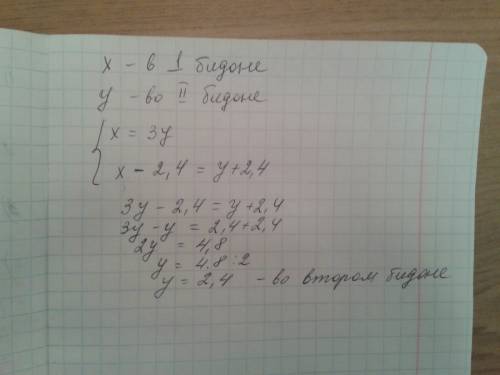 x - в 1 бидоне
y - во II бидоне
x = 3y
x - 2,4 = y+2,4
3y - 2,4 = y+2,4
3y - y = 2,4+2,4
2y = 4,8
y = 4,8:2
y = 2,4 - во втором бидоне